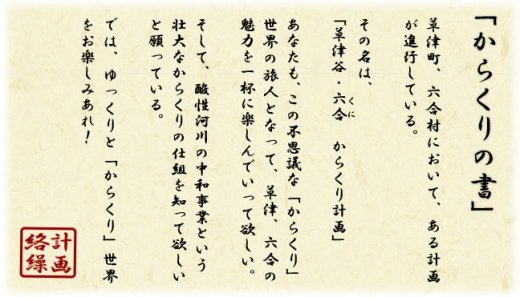 「からくりの書」
草津町、六合村において、ある計画
が進行している。
その名は、
「草津谷・六合 からくり計画」
くに
あなたも、この不思議な「からくり」
世界の旅人となって、草津、六合の
魅力を一杯に楽しんでいって欲しい。
そして、酸性河川の中和事業という
壮大なからくりの仕組を知って欲しい
と願っている。
では、ゆっくりと「からくり」世界
をお楽しみあれ！
計画
絡繰